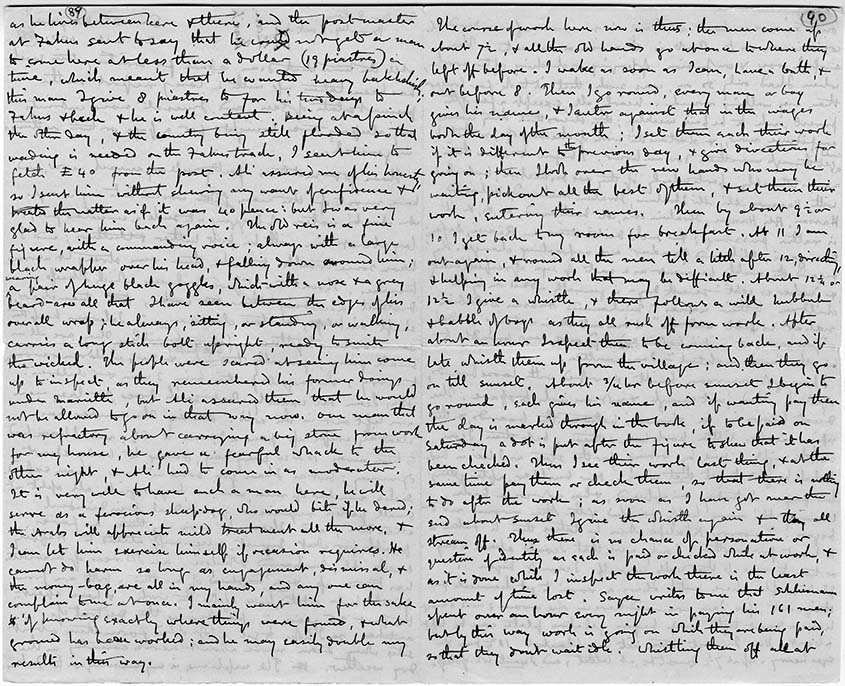 89
as he lives between here & there, and the postmaster
at Fakus sent to say that he could not get a man
to come here at less than a dollar (19 piastres) a
time, which meant that he wanted heavy bakhshish;
this man I give 8 piastres to for his two days to
Fakus & back & he is well content. Being at a pinch
the other day, & the country being still flooded so that
wading is needed on the Fakus track, I sent him to
fetch £40 from the post. Ali assured me of his honesty
so I sent him without shewing any want of confidence &
treats the matter as if it was 40 pence: but I was very
glad to hear him back again. The old reis is a fine
figure, with a commanding voice; always with a large
black wrapper over his head, & falling down around him;
a pair of huge black goggles, which with a nose & a grey
beard are all that I have seen between the edges of his
overall wrap; he always, sitting, or standing, or walking,
carries a long stick bolt upright, ready to smite
the wicked. The people were scared at seeing him come
up to inspect, as they remembered his former doings
under Mariette, but Ali assured them that he would
not be allowed to go on in that way now. One man that
was refractory about carrying a big stone from work
for my house, he gave a fearful whack to the
other night, & Ali had to come in as moderator.
It is very well to have such a man here, he will
serve as a ferocious sheepdog, who would bite if he dared;
the Arabs will appreciate mild treatment all the more, &
I can let him exercise himself if occasion requires. He
cannot do harm so long as engagement, dismissal, &
the money-bag, are all in my hands, and any one can
complain to me at once. I mainly want him for the sake
of knowing exactly where things were found, & what
ground has been worked; and he may easily double my
results in this way.
90
The course of work here now is thus; the men come up
about 7½, & all the old hands go at once to where they
left off before. I wake as soon as I can, have a bath, &
out before 8. Then I go round, every man or boy
gives his name, & I enter against that in the wages
book the day of the month; I set them each their work
if it is different to the previous day, & give directions for
going on; then I look over the new hands who may be
waiting, pick out all the best of them, & set them their
work, entering their names. Then by about 9½ or
10 I get back to my room for breakfast. At 11 I am
out again, & round all the men till a little after 12, directing,
& helping in any work that may be difficult. About 12¼ or
12½ I give a whistle, & there follows a wild hubbub
& babble of boys as they all rush off from work. After
about an hour I expect them to be coming back, and if
late whistle them up from the village; and then they go
on till sunset. About ¾ hr before sunset I begin to
go round, each gives his name, and if wanting pay then
the day is marked through in the book, if to be paid on
Saturday a dot is put after the figure to shew that it has
been checked. Thus I see their work last thing, & at the
same time pay them or check them, so that there is nothing
to do after the work; as soon as I have got near the
end about sunset I give the whistle again & they all
stream off. Thus there is no chance of personation or
question of identity as each is paid or checked while at work, &
as it is done while I inspect the work there is the least
amount of time lost. Sayce writes to me that Schliemann
spent over an hour every night in paying his 161 men;
but by this way work is going on while they are being paid,
so that they don't wait idle. Whistling them off all at